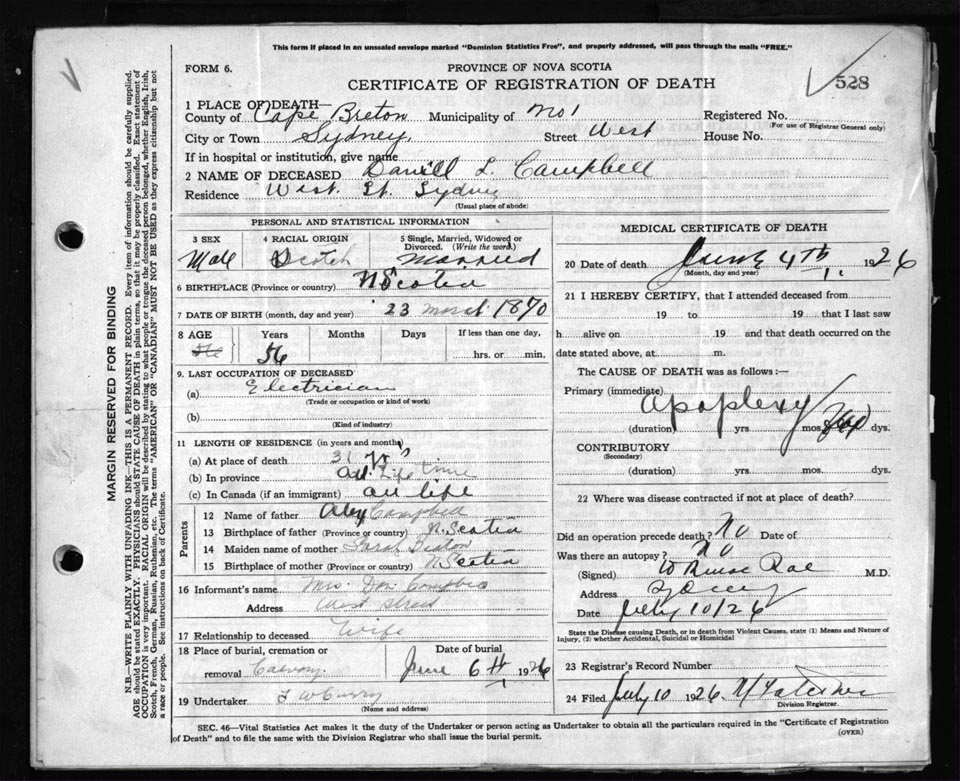 This form if placed in an unsealed envelope marked "Dominion Statistics Free", and properly addressed, will pass through the mails "FREE."
FORM 6.
PROVINCE OF NOVA SCOTIA
528
CERTIFICATE OF REGISTRATION OF DEATH
1 PLACE OF DEATH—
County of Cape Breton Municipality of No 1 Registered No.
(For use of Registrar General only)
City or Town Sydney, Street West House No.
If in hospital or institution, give name
2 NAME OF DECEASED L. Campbell
Residence West. St. Sydney
(Usual place of abode)
PERSONAL AND STATISTICAL INFORMATION
3 SEX 4 RACIAL ORIGIN 5 Single, Married, Widowed or Divorced. (Write the word.)
Male Scotch Married
6 BIRTHPLACE (Province or country) N Scotia
7 DATE OF BIRTH (month, day and year) 23 March 1870
8 AGE Years Months Days If less than one day,
56 hrs. or min.
9. LAST OCCUPATION OF DECEASED
(a) Electrician
(Trade or occupation or kind of work)
(b)
(Kind of industry)
11 LENGTH OF RESIDENCE (in years and months)
(a) At place of death 31 yrs
(b) In province all life time
(c) In Canada (if an immigrant) all life
Parents
12 Name of father Alex Campbell
13 Birthplace of father (Province or country) N. Scotia
14 Maiden name of mother Sarah
15 Birthplace of mother (Province or country) N Scotia
16 Informant's name Mrs. Dan Campbell
Address West Street
17 Relationship to deceased Wife
18 Place of burial, cremation or removal Calvary. Date of burial June 6th 1926
19 Undertaker F W Curry
(Name and address)
MEDICAL CERTIFICATE OF DEATH
20 Date of death June 4th 1926
(Month, day and year)
21 I HEREBY CERTIFY, that I attended deceased from
19 to 19 that I last saw
h alive on 19 and that death occurred on
date stated above, at m.
The CAUSE OF DEATH was as follows:—
Primary (immediate) Apoplexy
(duration) yrs. mos. dys.
CONTRIBUTORY
(Secondary)
(duration) yrs. mos. dys.
22 Where was disease contracted if not at place of death?
Did an operation precede death? No Date of
Was there an autopsy? No
(Signed) Rae M.D.
Address
Date July 10/26
State the Disease causing Death, or in death from Violent Causes, state (1) Means and Nature of
Injury, (2) whether Accidental, Suicidal or Homicidal
23 Registrar's Record Number
24 Filed July 10 1926
Division Registrar.
SEC. 46—Vital Statistics Act makes it the duty of the Undertaker or person acting as Undertaker to obtain all the particulars required in the "Certificate of Registration
of Death" and to file the same with the Division Registrar who shall issue the burial permit.
(OVER)
MARGIN RESERVED FOR BINDING
N.B.—WRITE PLAINLY WITH UNFADING INK—THIS IS A PERMANENT RECORD. Every item of information should be carefully supplied.
AGE should be stated EXACTLY. PHYSICIANS should STATE CAUSE OF DEATH in plain terms, so that it may be properly classified. Exact statement of
OCCUPATION is very important. RACIAL ORIGIN will be described by stating to what people or tongue the deceased person belonged, whether English, Irish,
Scotch, French, German, Russian, Ruthenian, etc. The terms "AMERICAN" or "CANADIAN" MUST NOT BE USED as they express citizenship but not
a race or people. See instructions on back of Certificate.